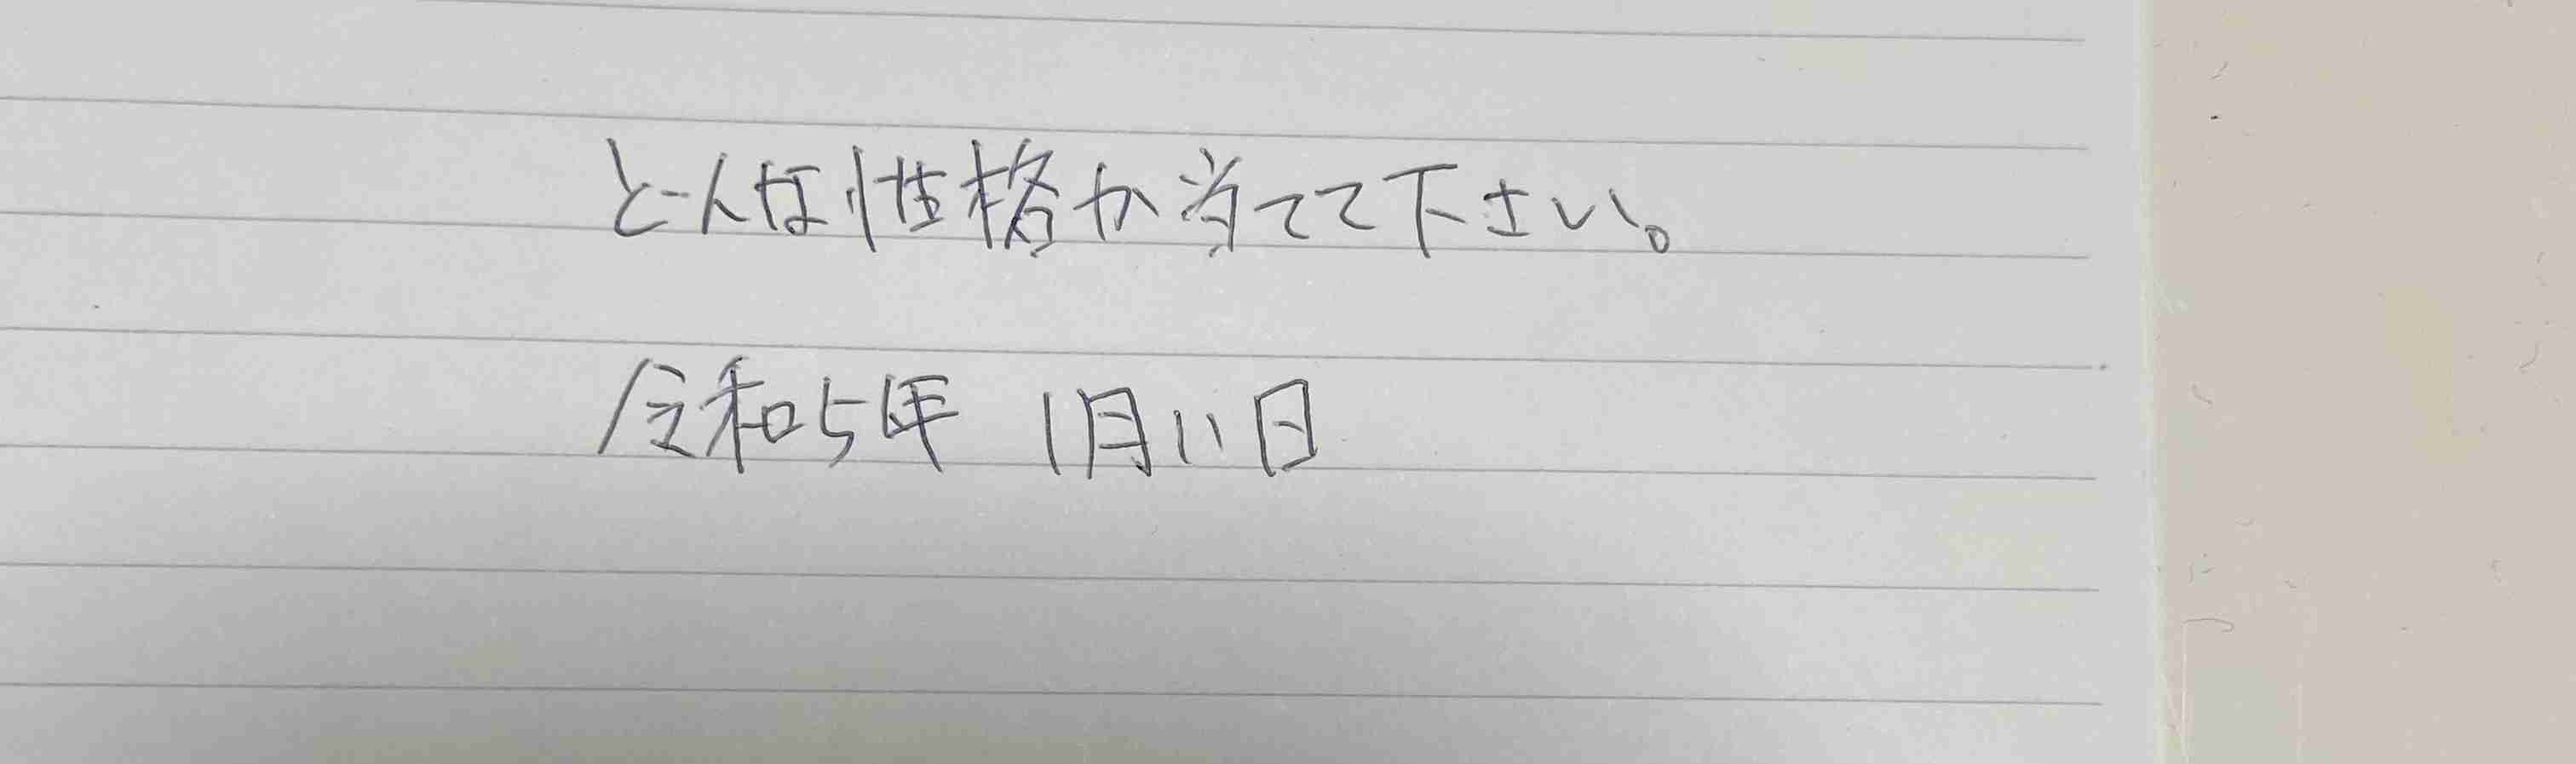 どんな性格か当てて下さい。
令和5年 1月11日